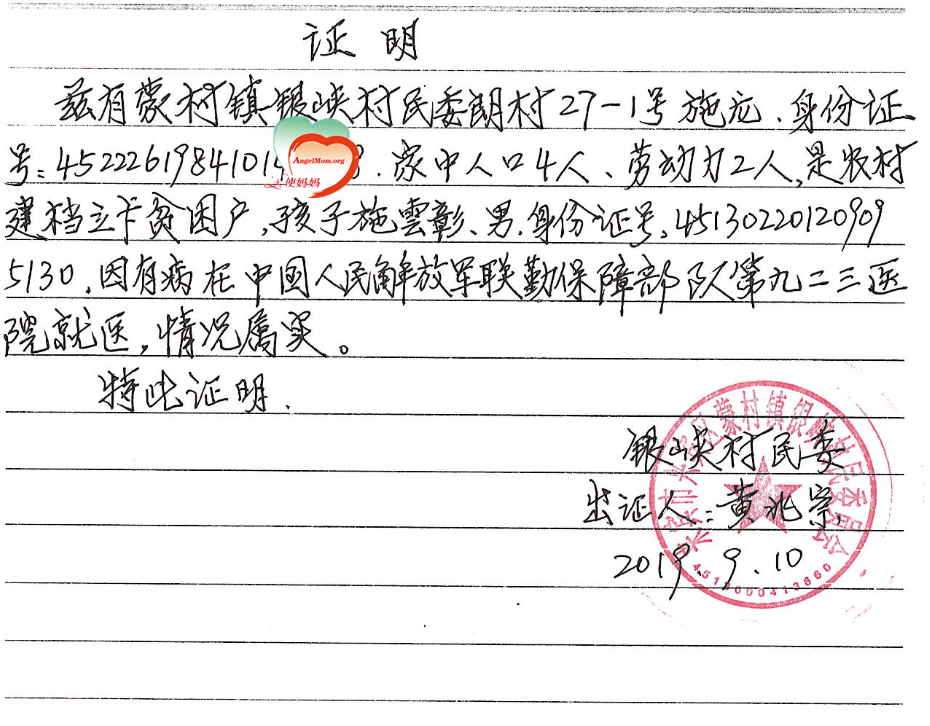 证 明
兹有蒙村镇银峡村民委朗村27-1号施 、身份证
号:45222619841015 3.家中人口4人、劳动力2人,是农村
建档立卡贫困户,孩子施雲彰、男.身份证号:45130220120909
5130.因有病在中國人民解放军联勤保障部队第九二三医
院就医,情况属实。
特此证明.
AngelMom.org
天使妈妈
银峡村民委
出证人:黄兆宗
2019.9.10
蒙村镇银峡村民委员会
4513000413660